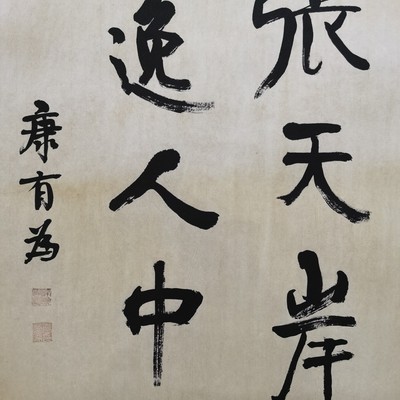 張天岸
逸人中
康有為